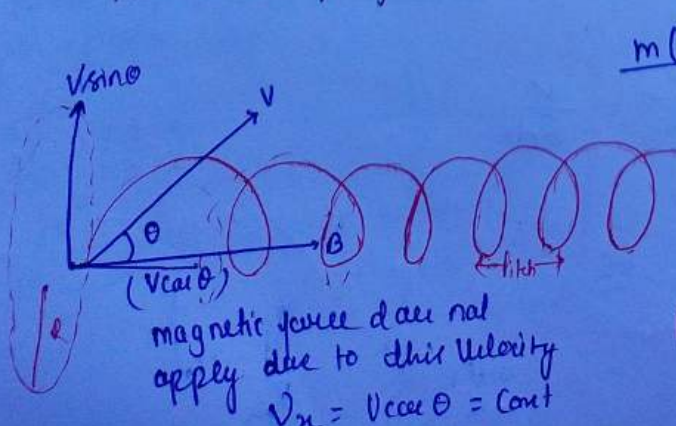 m(
Vsinθ
V
θ
B
(Vcosθ)
Pitch
R
magnetic force does not
apply due to this Velocity
Vx = Vcosθ = Cont